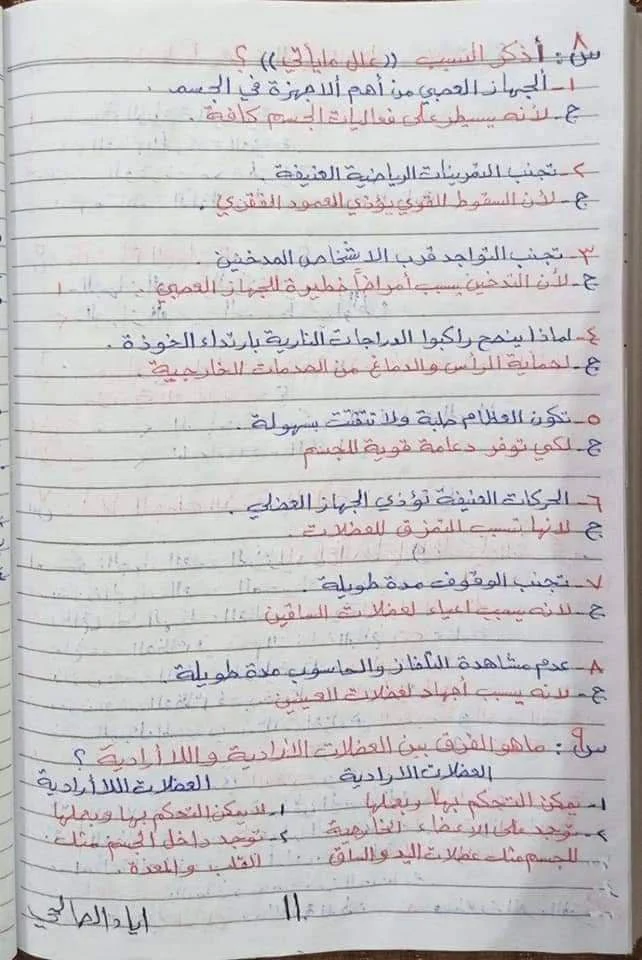 س٨: أذكر السبب ((علل ما يأتي)) ؟
١- الجهاز العصبي من أهم الاجهزة في الجسم .
ج- لأنه يسيطر على فعاليات الجسم كافة .
٢- تجنب التمرينات الرياضية العنيفة .
ج- لأن السقوط القوي يؤذي العمود الفقري .
٣- تجنب التواجد قرب الاشخاص المدخنين .
ج- لأن التدخين يسبب أمراضاً خطيرة للجهاز العصبي
٤- لماذا ينصح راكبوا الدراجات النارية بارتداء الخوذة .
ج- لحماية الرأس والدماغ من الصدمات الخارجية .
٥- تكون العظام صلبة ولا تتفتت بسهولة .
ج- لكي توفر دعامة قوية للجسم
٦- الحركات العنيفة تؤذي الجهاز العضلي .
ج- لانها تسبب التمزق للعضلات .
٧- تجنب الوقوف مدة طويلة .
ج- لانه يسبب اعياء لعضلات الساقين
٨- عدم مشاهدة التلفاز والحاسوب مدة طويلة .
ج- لانه يسبب أجهاد لعضلات العينين
س٩: ماهو الفرق بين العضلات الارادية و اللا أرادية ؟
العضلات الارادية العضلات اللا أرادية
١- يمكن التحكم بها وبعملها ١- لا يمكن التحكم بها وبعملها
٢- توجد على الاعضاء الخارجية ٢- توجد داخل الجسم مثل
للجسم مثل عضلات اليد والساق القلب والمعدة .
11 اياد الصالحي